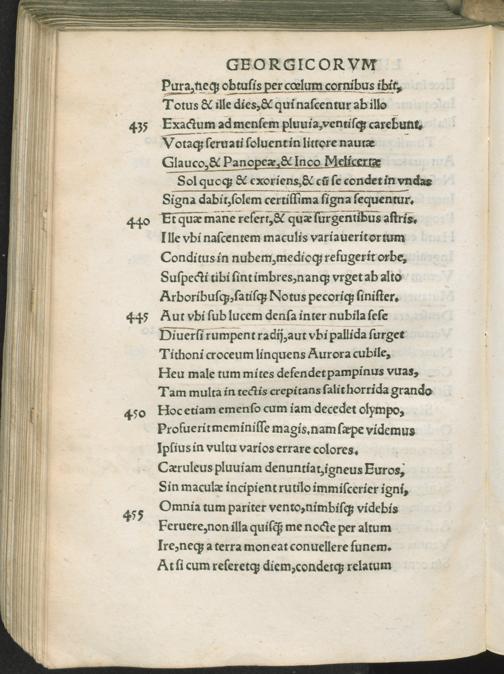 GEORGICORVM
Pura,neq; obtusis per cœlum cornibus ibit,
Totus & ille dies,& qui nascentur ab illo
435 Exactum ad mensem pluuia,ventisq; carebunt,
Votaq; seruati soluent in littore nautæ
Glauco,& Panopeæ,& Inoo Melicertæ
Sol quoq; & exoriens,& cũ se condet in vndas
Signa dabit,solem certissima signa sequentur.
440 Et quæ mane refert,& quæ surgentibus astris.
Ille vbi nascentem maculis variauerit ortum
Conditus in nubem,medioq; refugerit orbe,
Suspecti tibi sint imbres,nanq; vrget ab alto
Arboribusq;,satisq; Notus pecoriq; sinister.
445 Aut vbi sub lucem densa inter nubila sese
Diuersi rumpent radij,aut vbi pallida surget
Tithoni croceum linquens Aurora cubile,
Heu male tum mites defendet pampinus vuas,
Tam multa in tectis crepitans salit horrida grando
450 Hoc etiam emenso cum iam decedet olympo,
Profuerit meminisse magis,nam sæpe videmus
Ipsius in vultu varios errare colores.
Cæruleus pluuiam denuntiat,igneus Euros,
Sin maculæ incipient rutilo immiscerier igni,
455 Omnia tum pariter vento,nimbisq; videbis
Feruere,non illa quisq̃ me nocte per altum
Ire,neq; a terra moneat conuellere funem.
At si cum referetq; diem,condetq; relatum